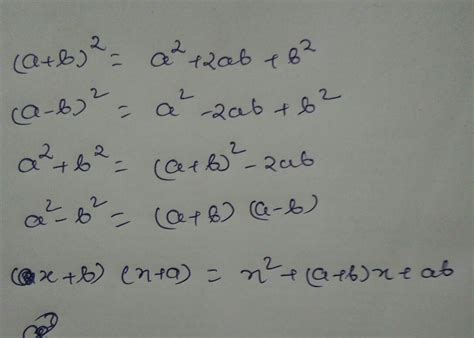 (a+b)² = a²+2ab+b²
(a-b)² = a²-2ab+b²
a²+b² = (a+b)²-2ab
a²-b² = (a+b) (a-b)
(x+b) (x+a) = x²+(a+b)x+ab